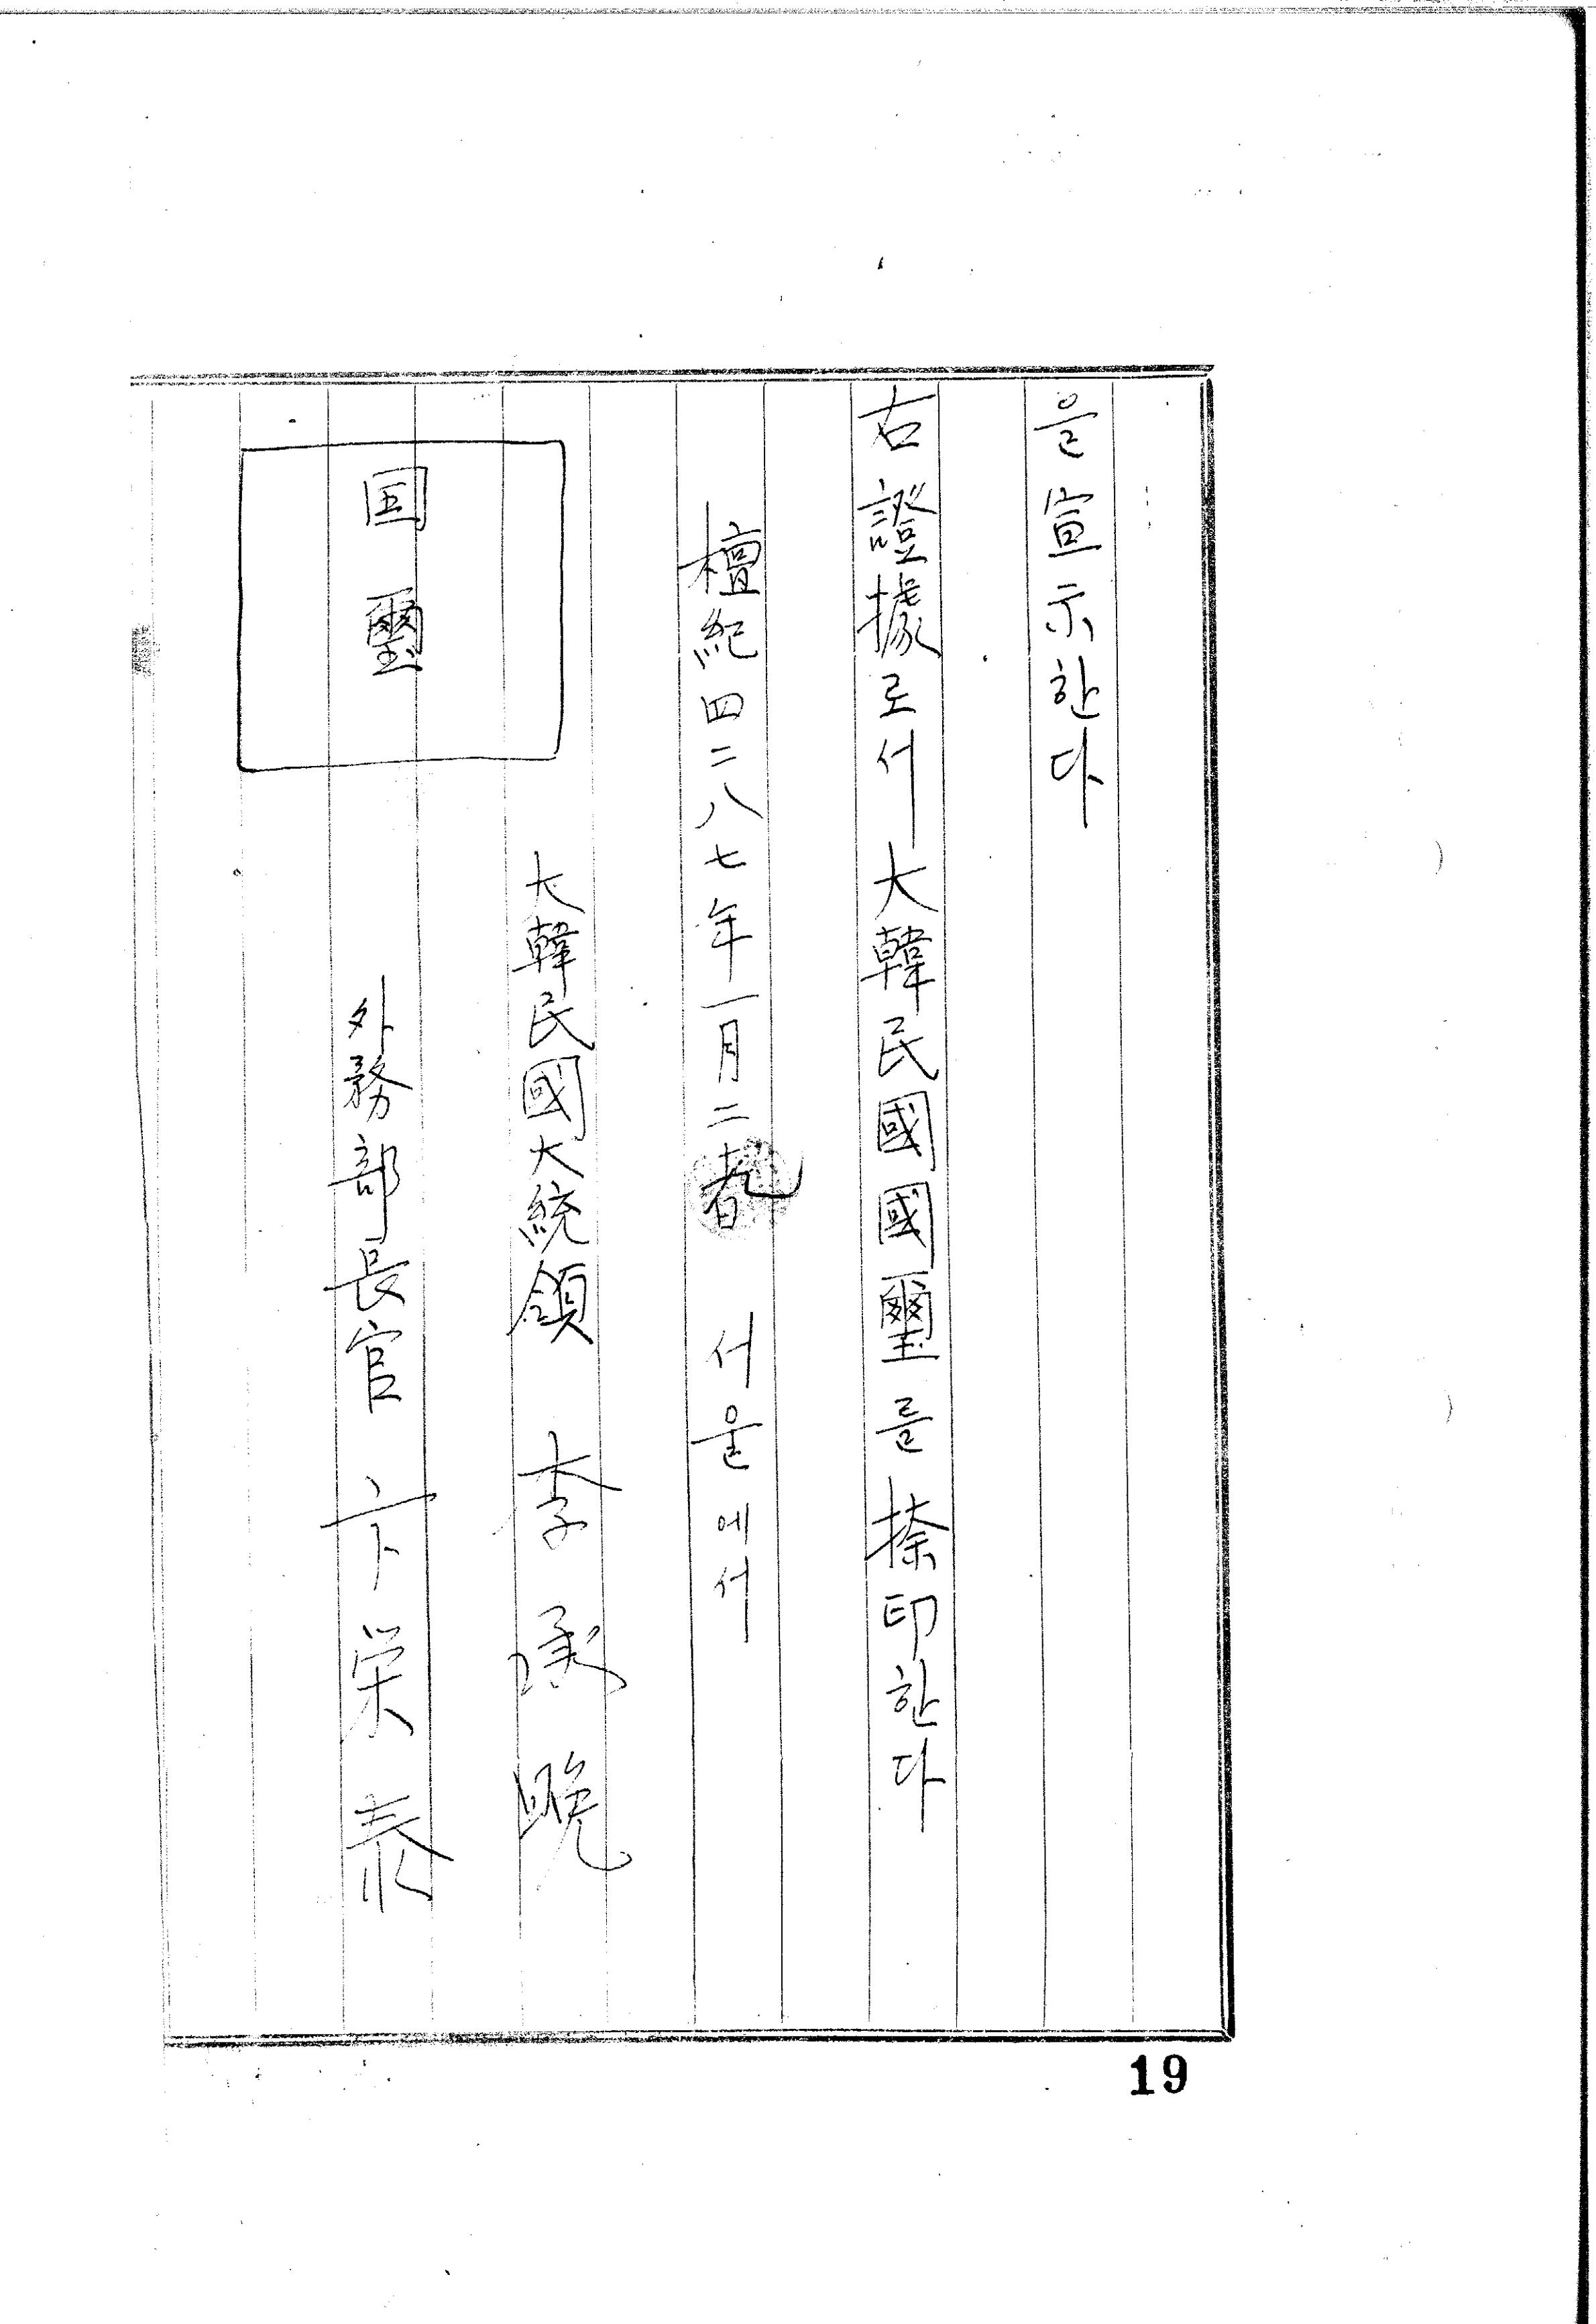 을宣示한다
右證據로서大韓民國國璽를捺印한다
檀紀四二八七年一月二 서울에서
大韓民國大統領 李承晩
外務部長官 卞栄泰
国璽
19